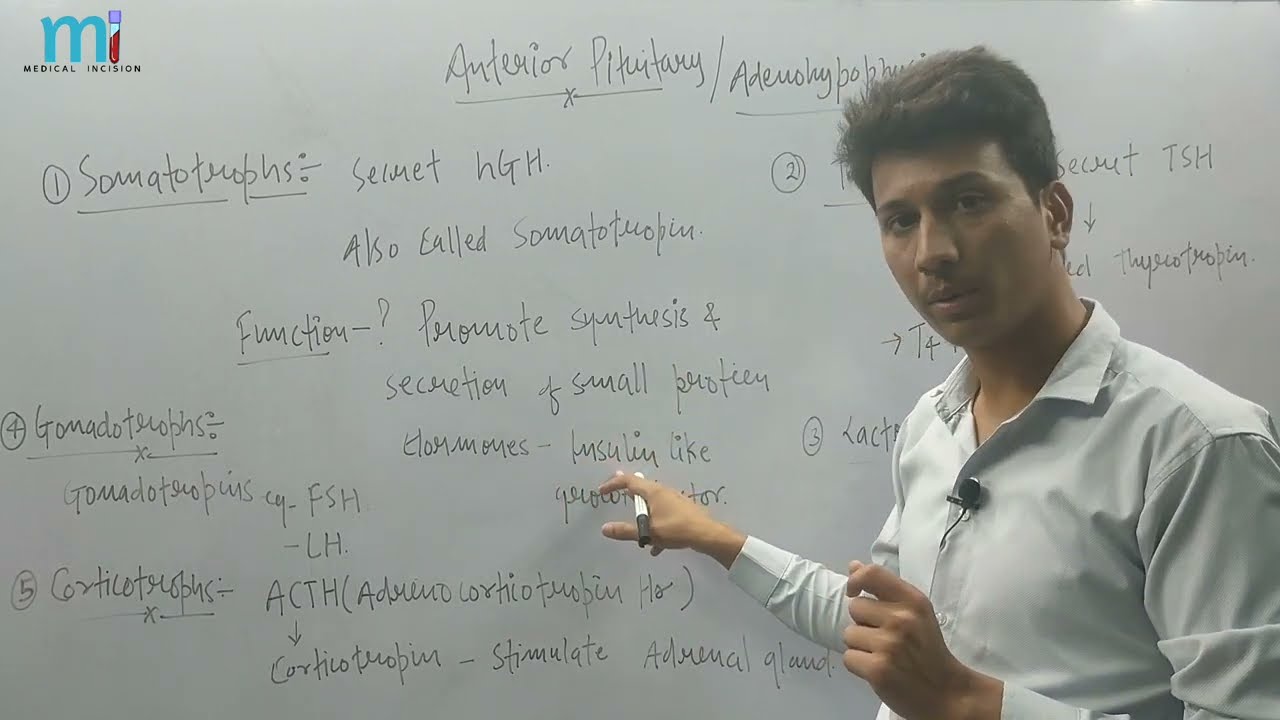 mi
MEDICAL INCISION
Anterior Pituitary / Adenohypophysis
① Somatotrophs:- Secret hGH.
Also Called Somatotropin.
Function - ? Promote synthesis &
secretion of small protien
Hormones - Insulin like
② Secret TSH
↓
Thyrotropin.
→ T4
③
④ Gonadotrophs:-
Gonadotropins eg- FSH
- LH.
⑤ Corticotrophs:- ACTH (Adrenocorticotropin Hor)
↓
Corticotropin - Stimulate Adrenal gland.